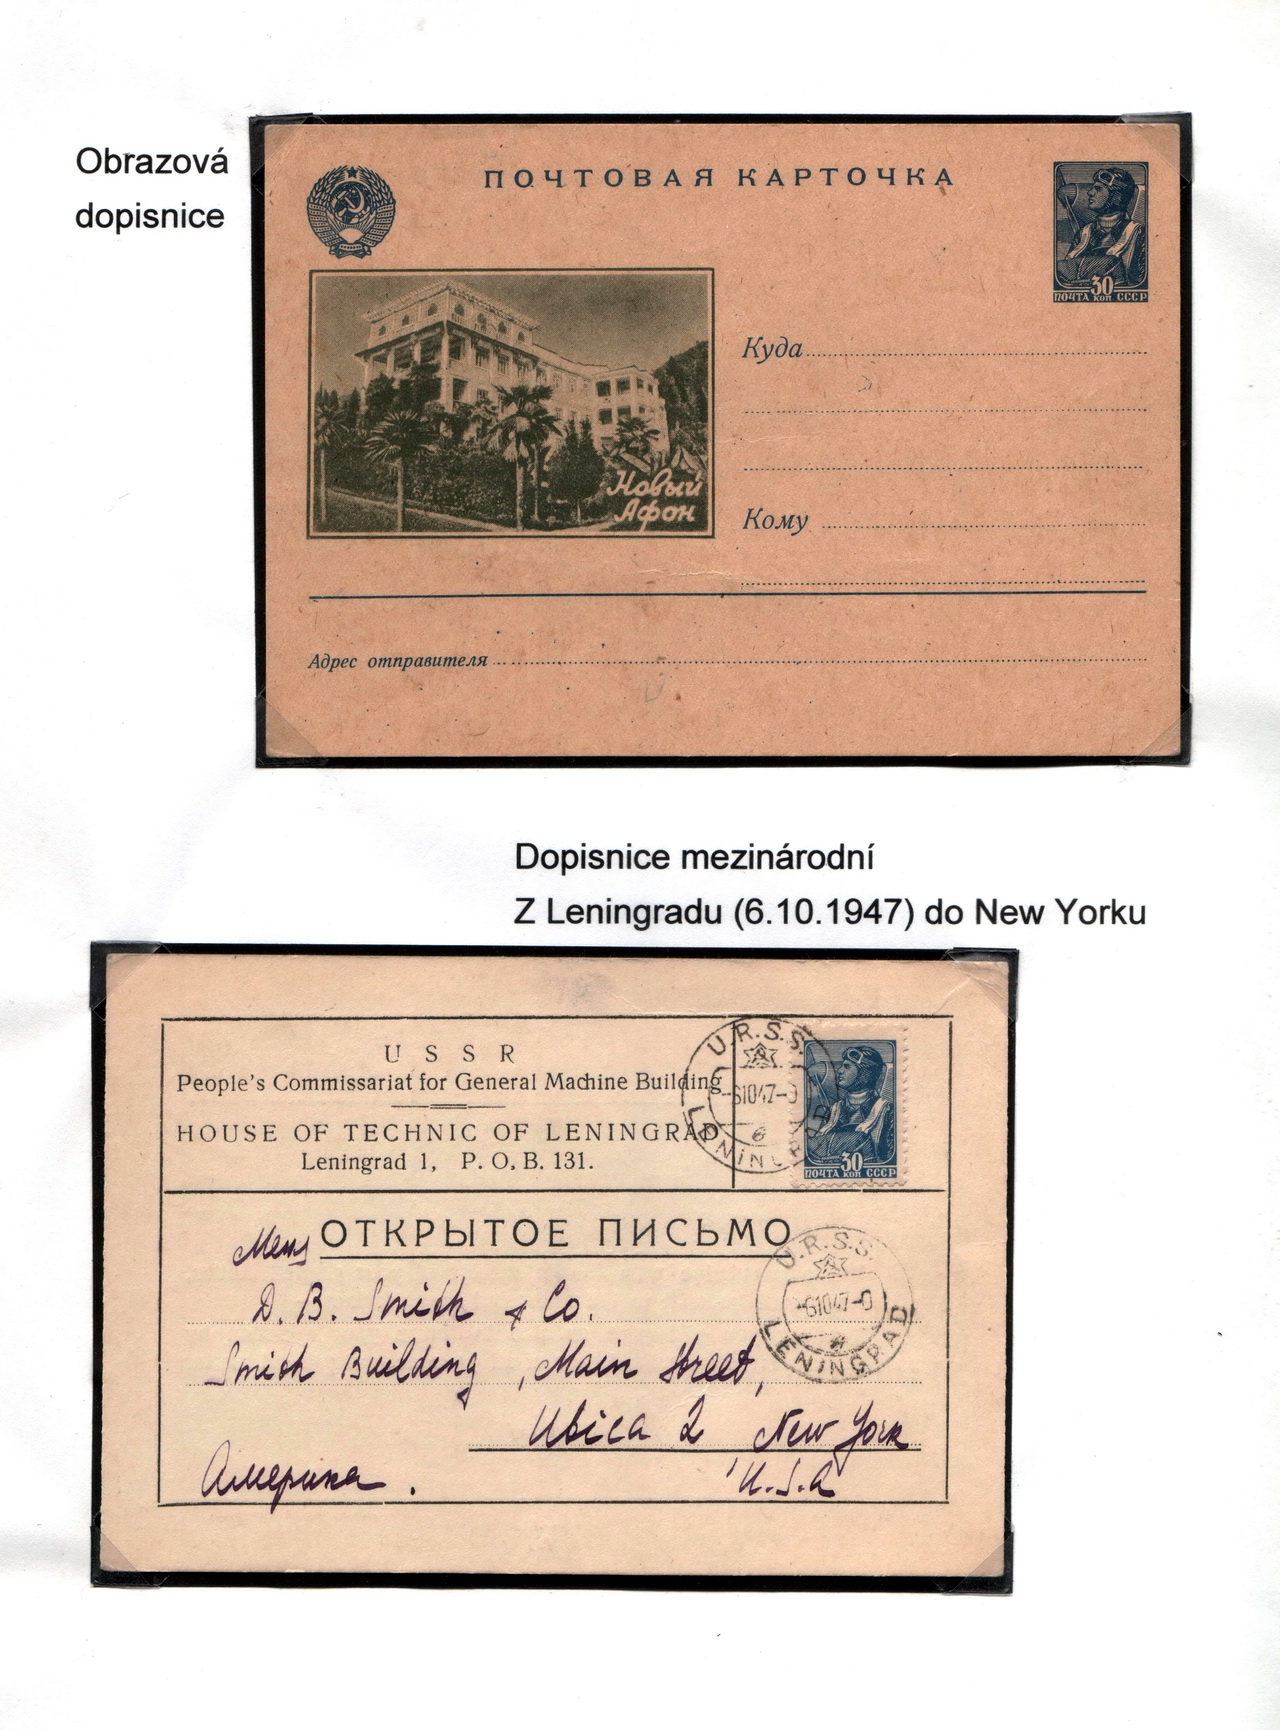 Obrazová
dopisnice
ПОЧТОВАЯ КАРТОЧКА
30
ПОЧТА КОП СССР
Куда
Новый
Афон
Кому
Адрес отправителя
Dopisnice mezinárodní
Z Leningradu (6.10.1947) do New Yorku
USSR
People's Commissariat for General Machine Building
HOUSE OF TECHNIC OF LENINGRAD
Leningrad 1, P. O. B. 131.
U.R.S.S.
-61047-0
LENINGRAD
30
ПОЧТА КОП СССР
ОТКРЫТОЕ ПИСЬМО
U.R.S.S.
-61047-0
LENINGRAD
D. B. Smith & Co.
Smith Building, Main Street,
Utica 2 New York
Америка. U.S.A